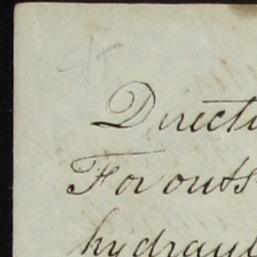 Directi
For outs
hydraul